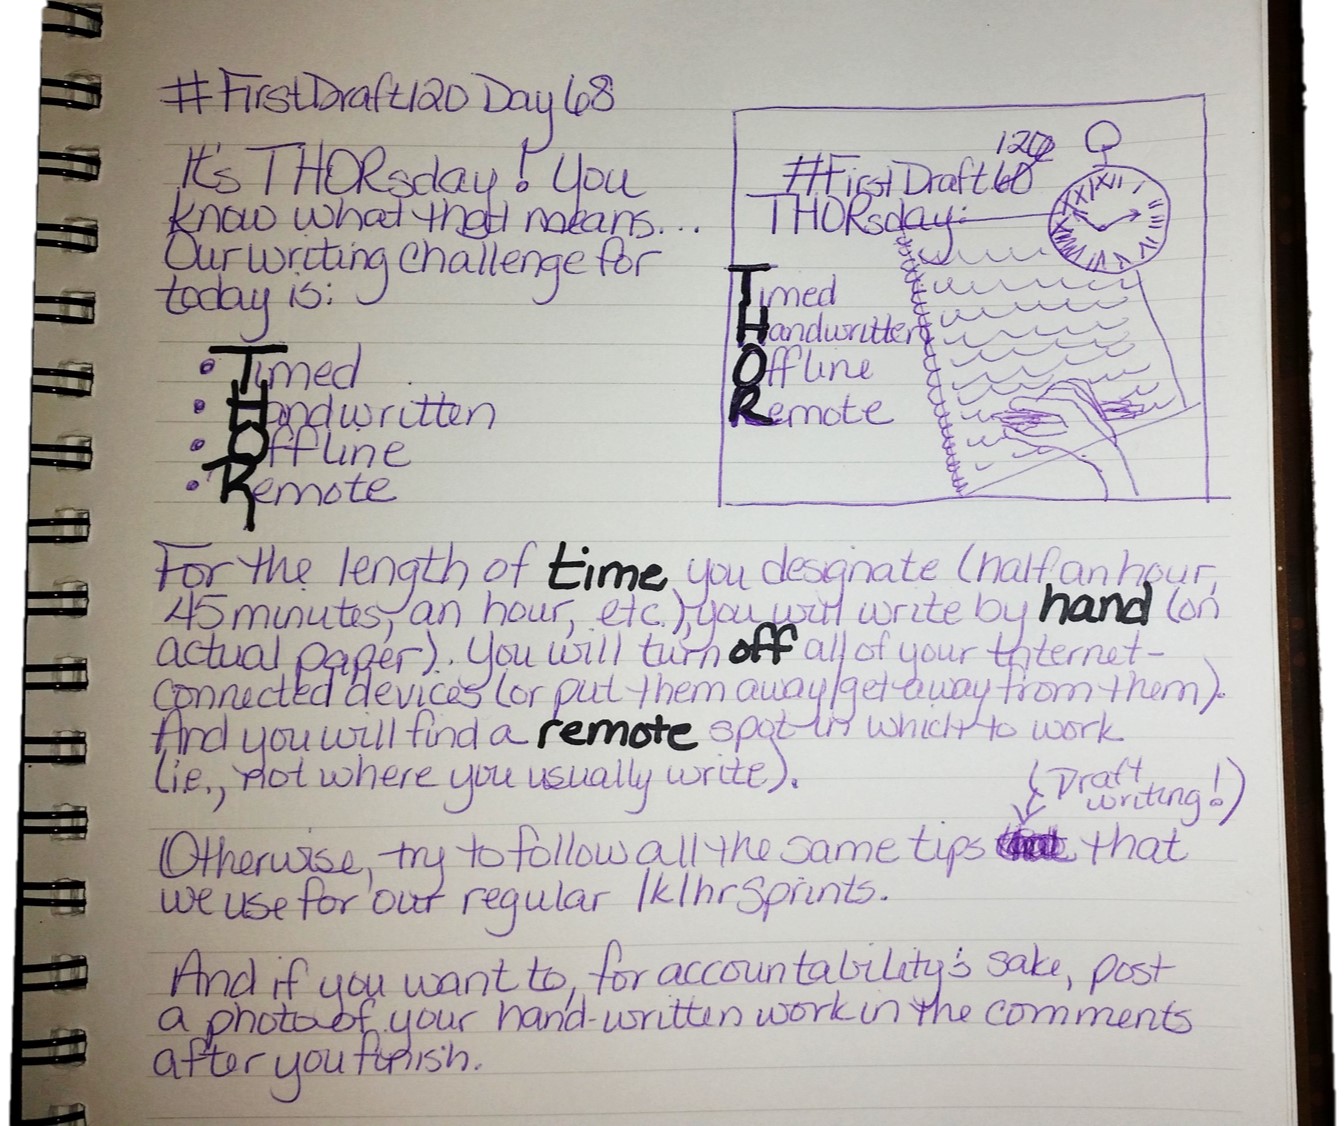 #FirstDraft120 Day 68
It's THORsday! You
know what that means...
Our writing challenge for
today is:
• Timed
• Handwritten
• Offline
• Remote
120
#FirstDraft 60
THORsday:
XI XII I
Timed
Handwritten
Offline
Remote
For the length of time you designate (half an hour,
45 minutes, an hour, etc.), you will write by hand (on
actual paper). You will turn off all of your Internet-
connected devices (or put them away/get away from them).
And you will find a remote spot in which to work
(ie., not where you usually write).
(Draft
writing!)
Otherwise, try to follow all the same tips that
we use for our regular 1k1hr Sprints.
And if you want to, for accountability's sake, post
a photo of your hand-written work in the comments
after you finish.